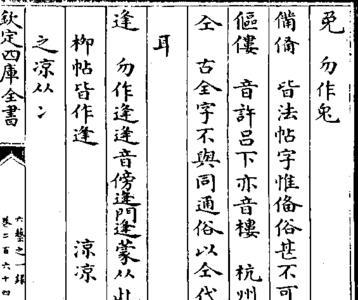 兎 勿作兔
備俻 皆法帖字惟俻俗甚不可
傴僂 音許吕下亦音樓 杭州
仝 古全字不與同通俗以仝代
耳
逢 勿作逄逄音傍逄門逄蒙从此
柳帖皆作逄 涼凉
之凉从冫
欽定四庫全書
六藝之一録
卷二百六十四